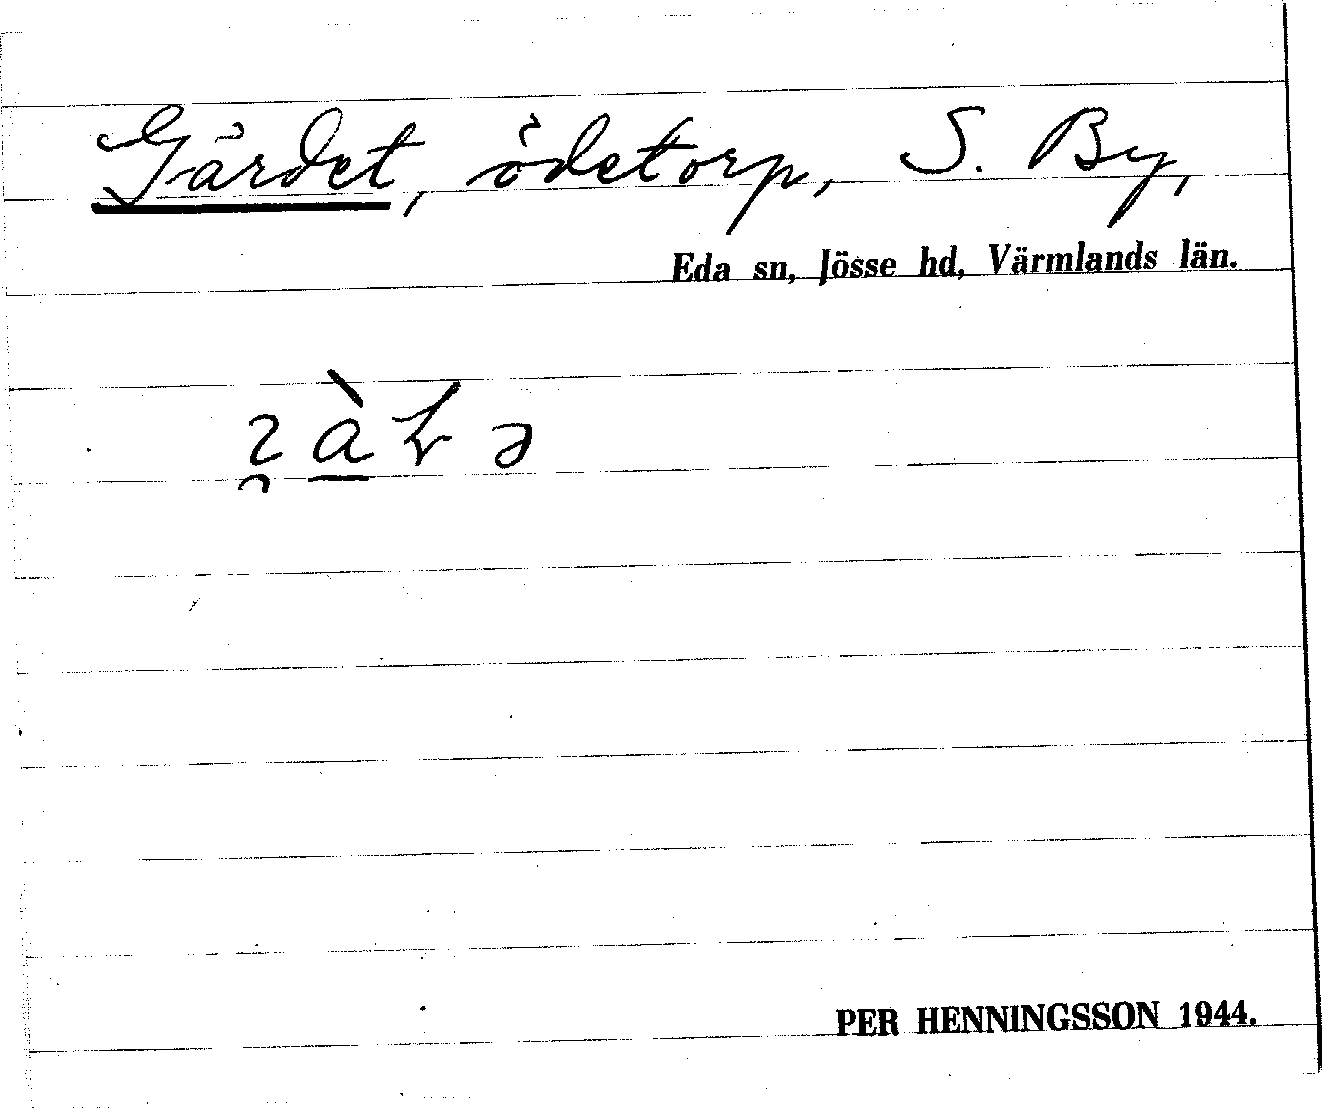 Gärdet, ödetorp, S. By,
Eda sn, Jösse hd, Värmlands län.
PER HENNINGSSON 1944.